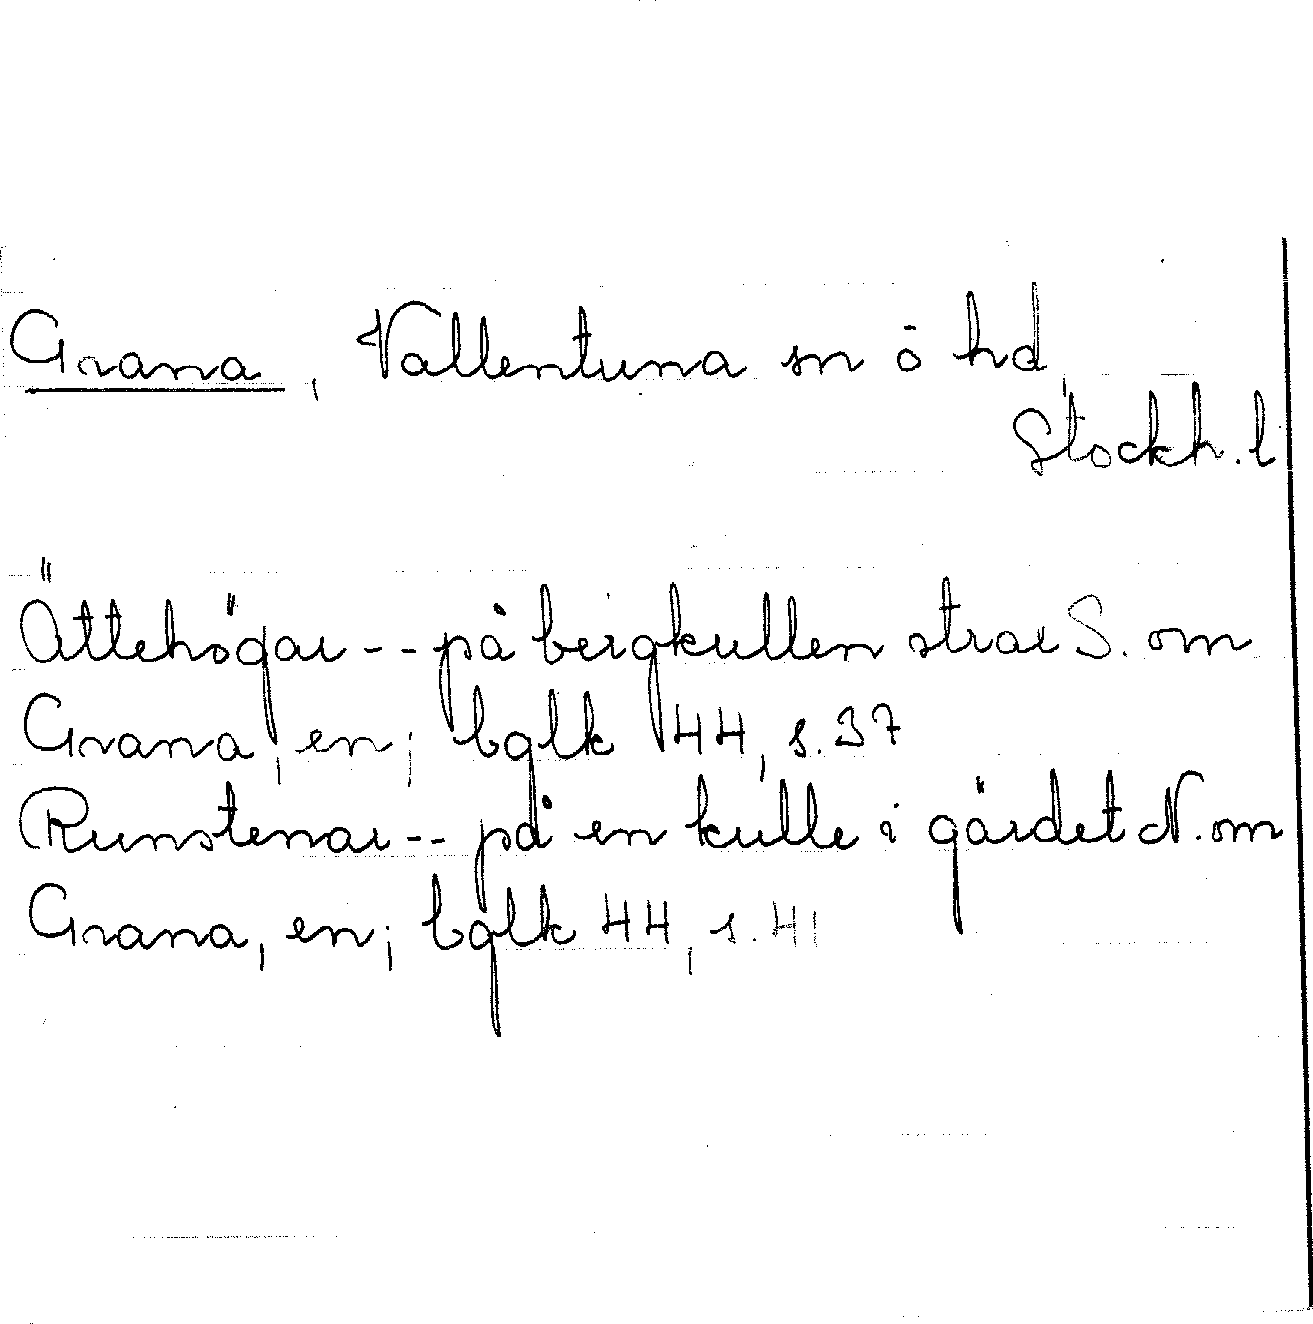 Grana, Vallentuna sn o hd,
Stockh. l
Ättehögar -- på bergkullen strax S. om
Grana, en; bglk 44, s. 37
Runstenar -- på en kulle i gärdet N. om
Grana, en; bglk 44, s. 41